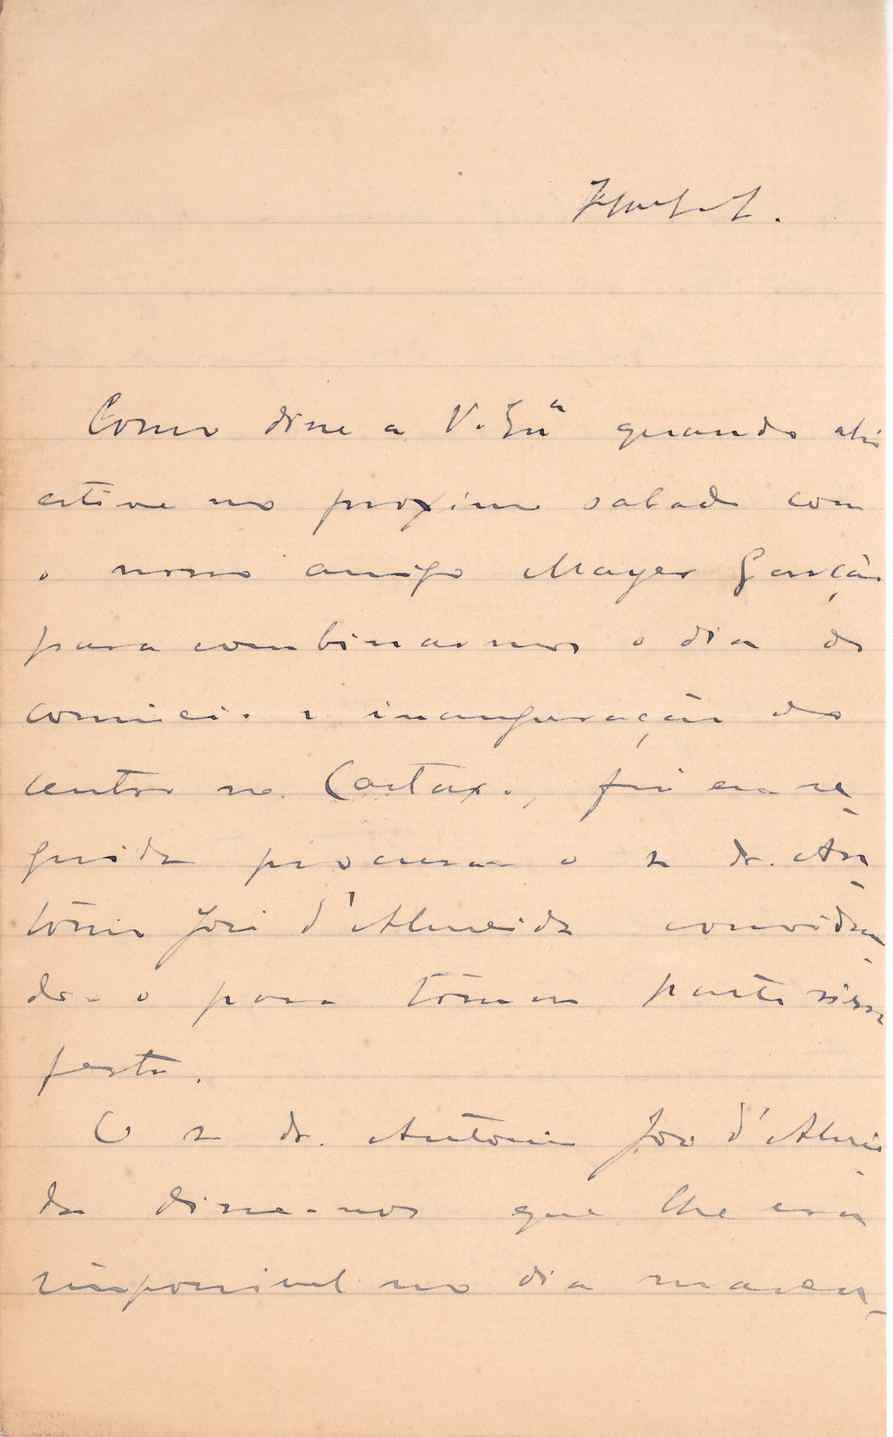 Como disse a V. Exª quando ahi
estive no proximo sabado com
o nosso amigo Mayer Garção
para combinarmos o dia do
comicio e inauguração do
centro no Cartaxo, fui em se-
guida procurar o sr dr. An-
tónio José d'Almeida convidan-
do-o para tomar parte nessa
festa.
O sr dr. Antonio José d'Almei-
da disse-nos que lhe era
impossivel no dia marca-